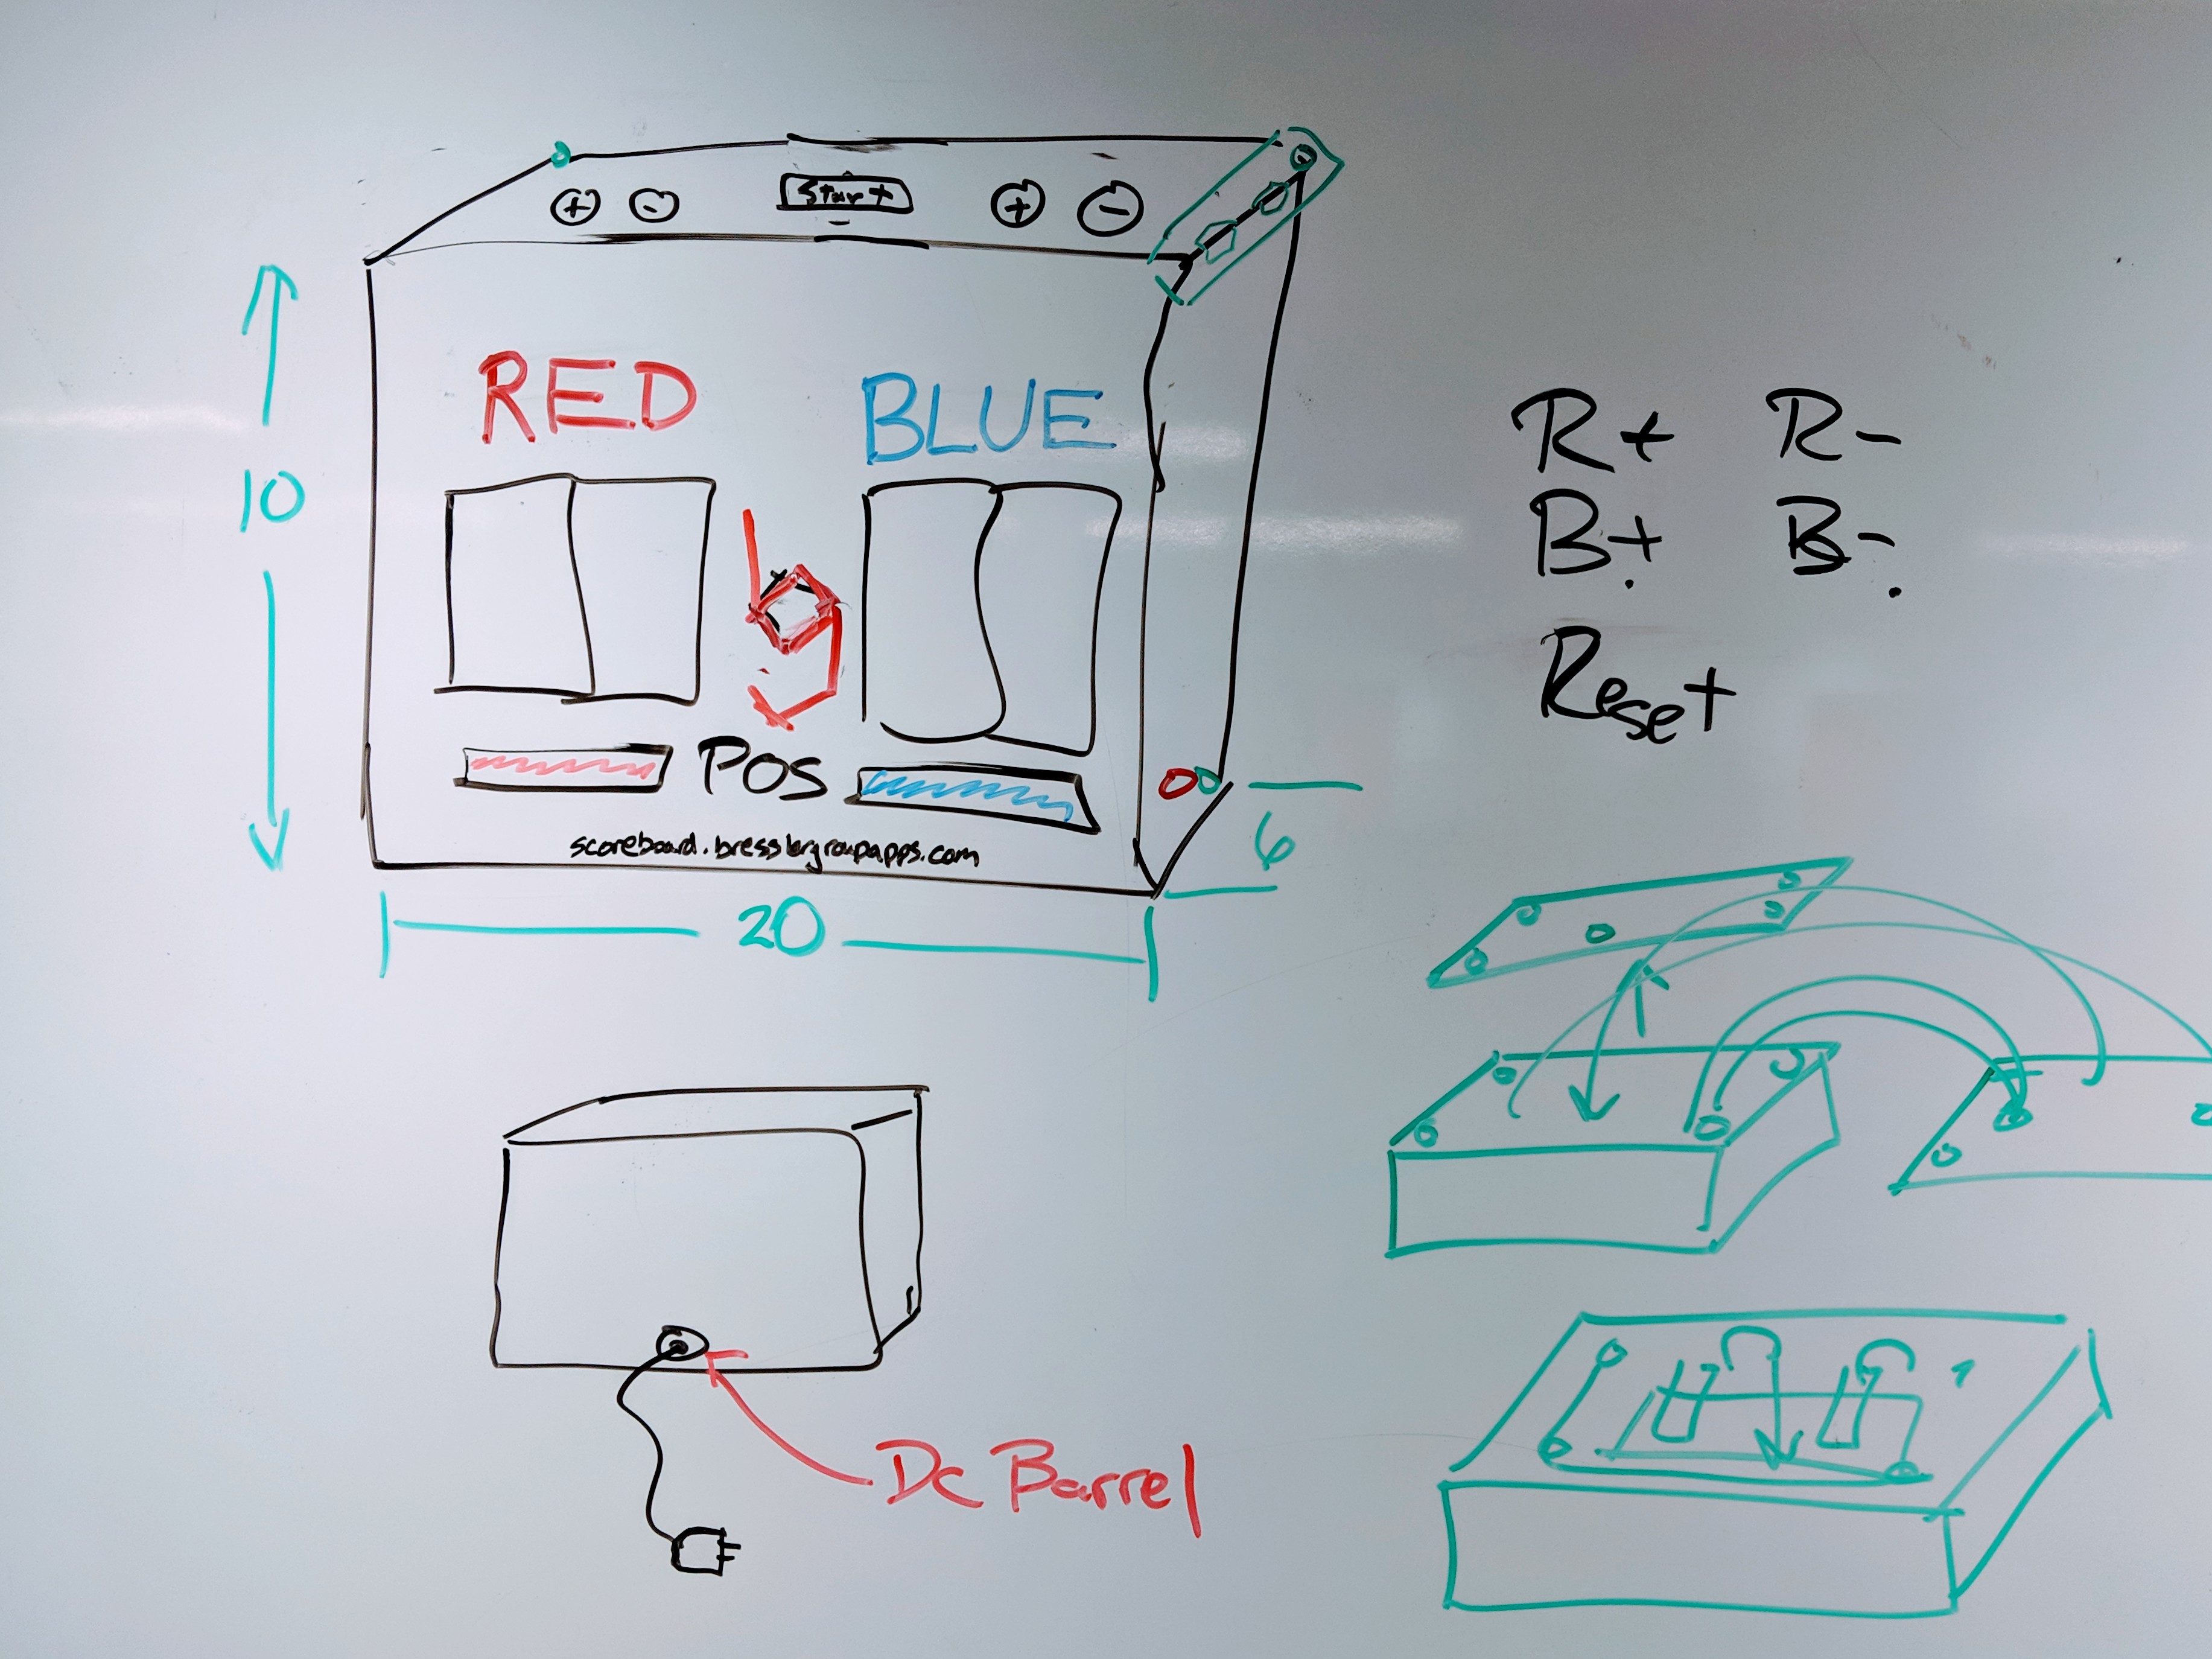 + - Start + -
RED BLUE
10
bg
POS
scoreboard.bresslergroupapps.com
6
20
R+ R-
B+ B-
Reset
DC Barrel